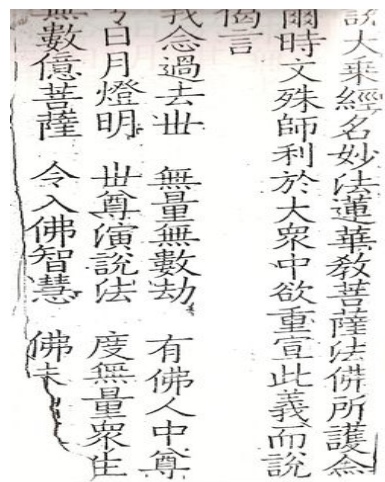 說大乘經名妙法蓮華教菩薩法佛所護念
爾時文殊師利於大衆中欲重宣此義而說
偈言
我念過去世 無量無數劫 有佛人中尊
号日月燈明 世尊演說法 度無量衆生
無數億菩薩 令入佛智慧 佛未